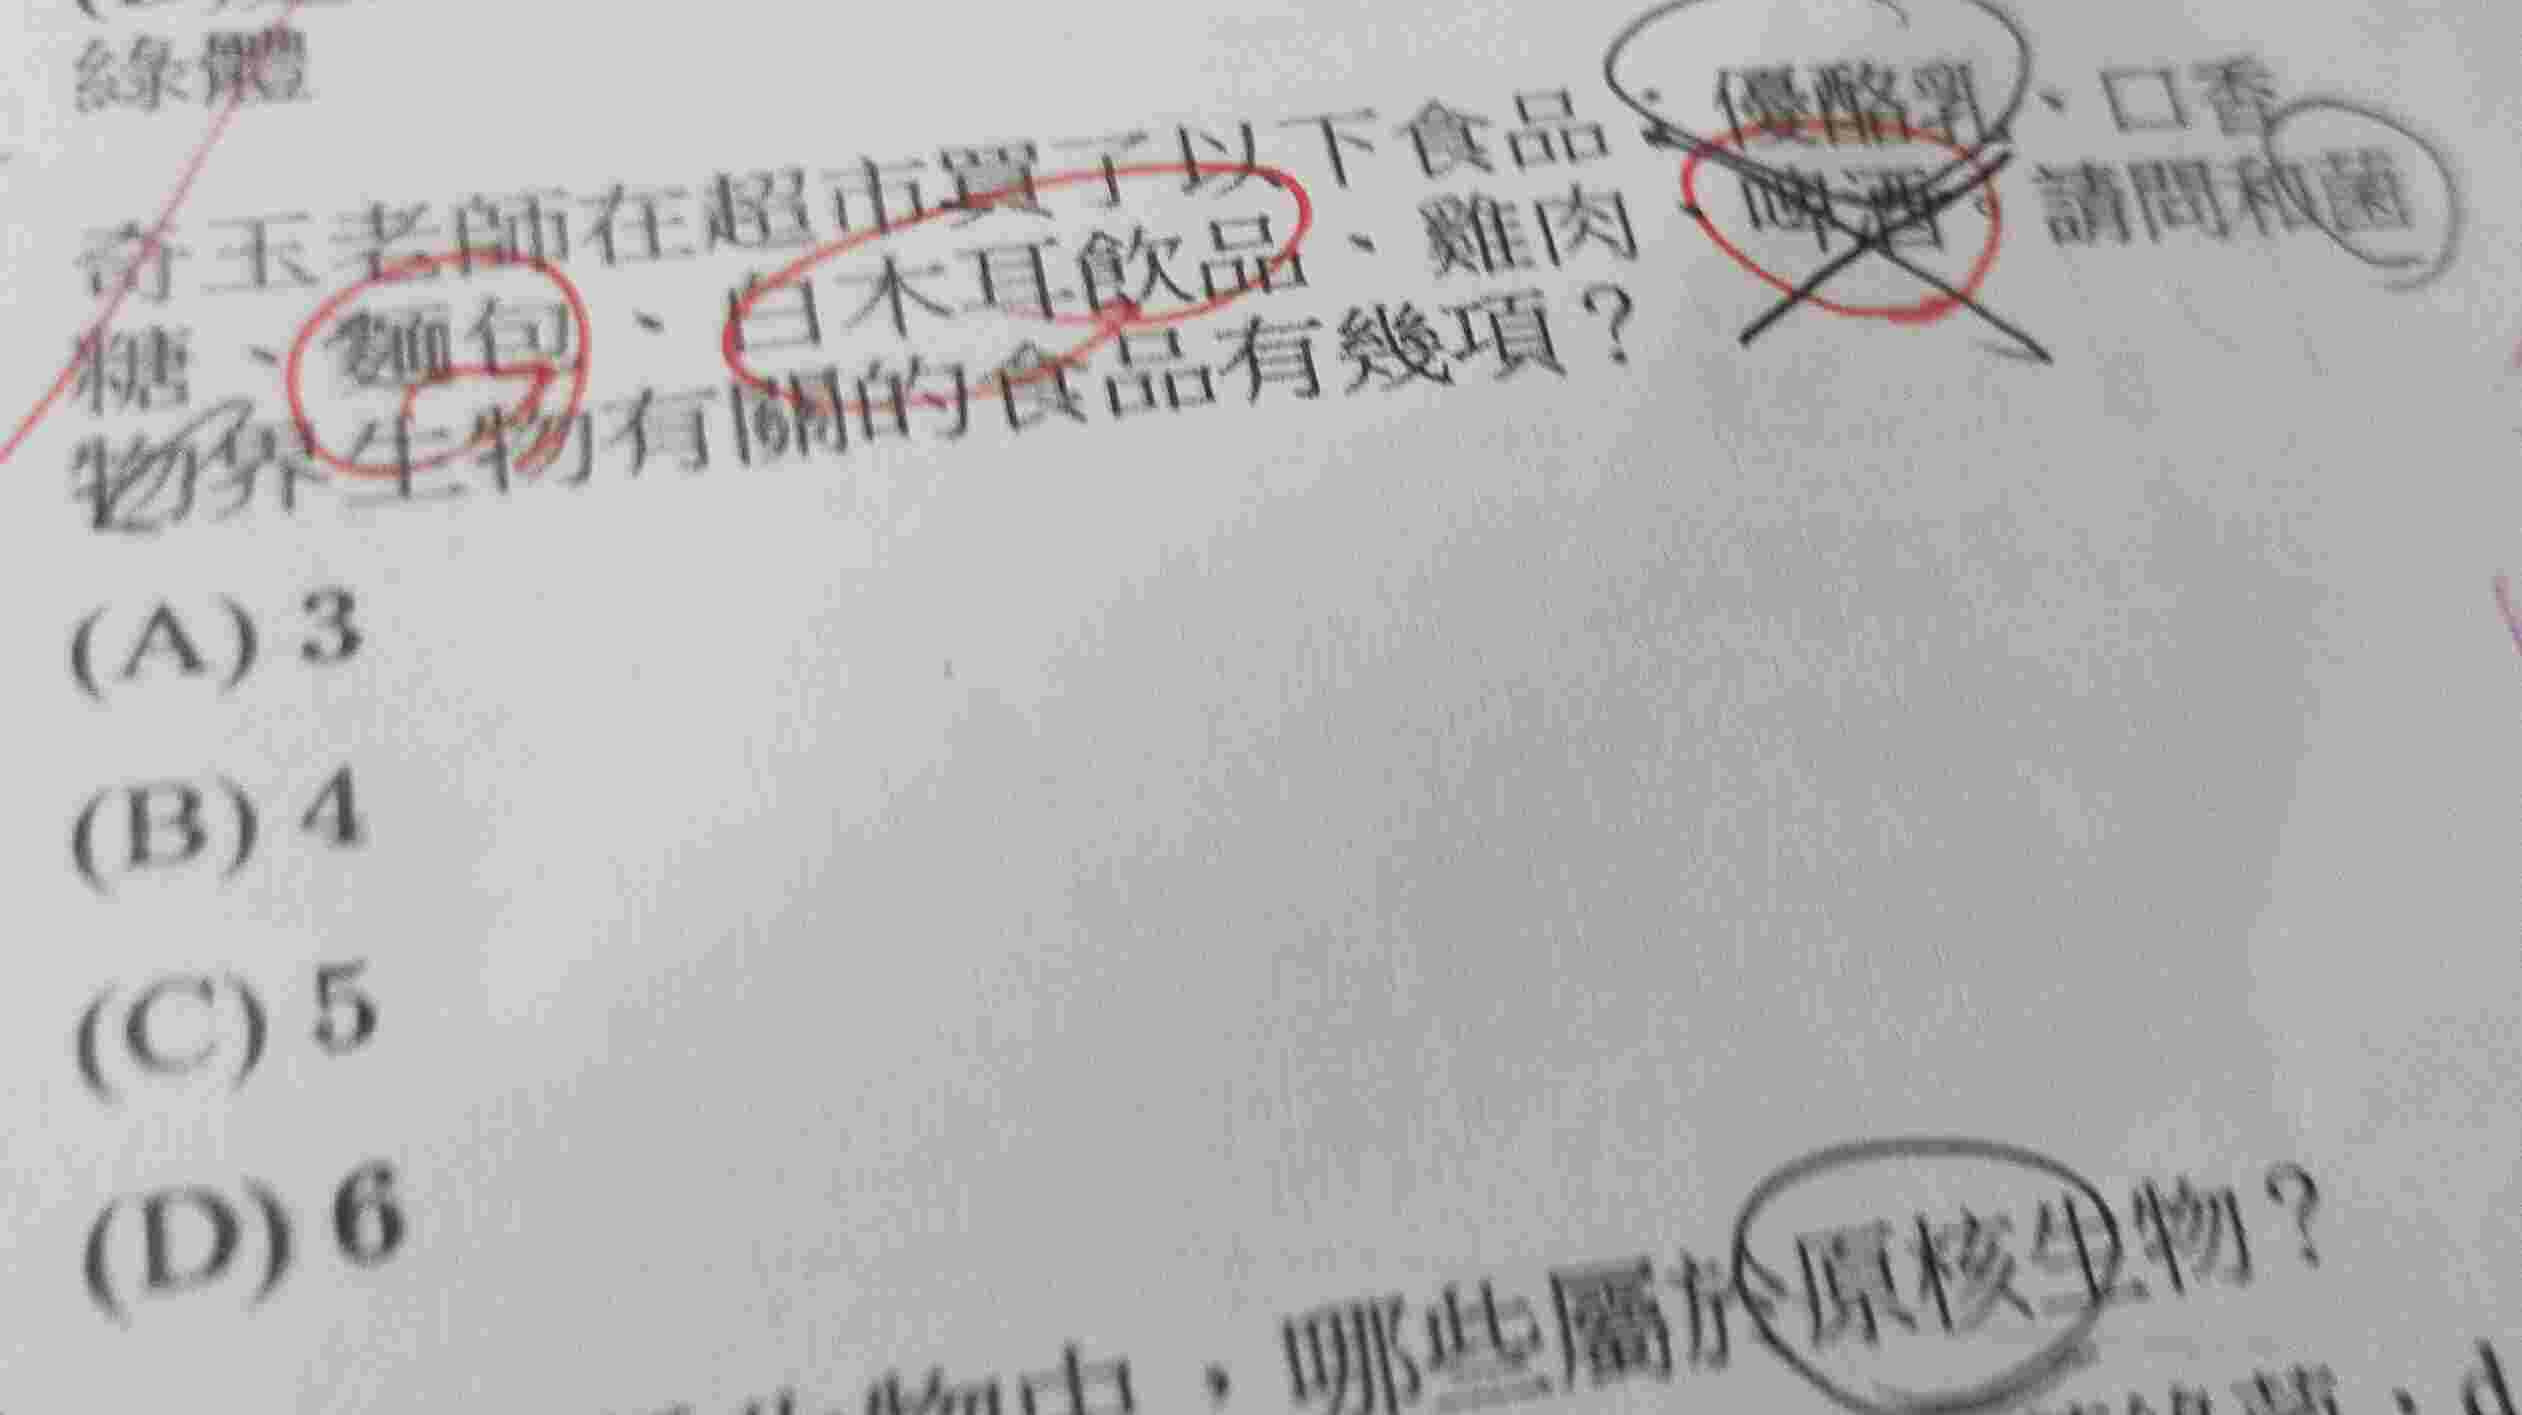 綠體
奇玉老師在超市買了以下食品：優酪乳、口香
糖、麵包、白木耳飲品、雞肉、啤酒。請問和菌
物界生物有關的食品有幾項？
(A) 3
(B) 4
(C) 5
(D) 6
物中，哪些屬於原核生物？